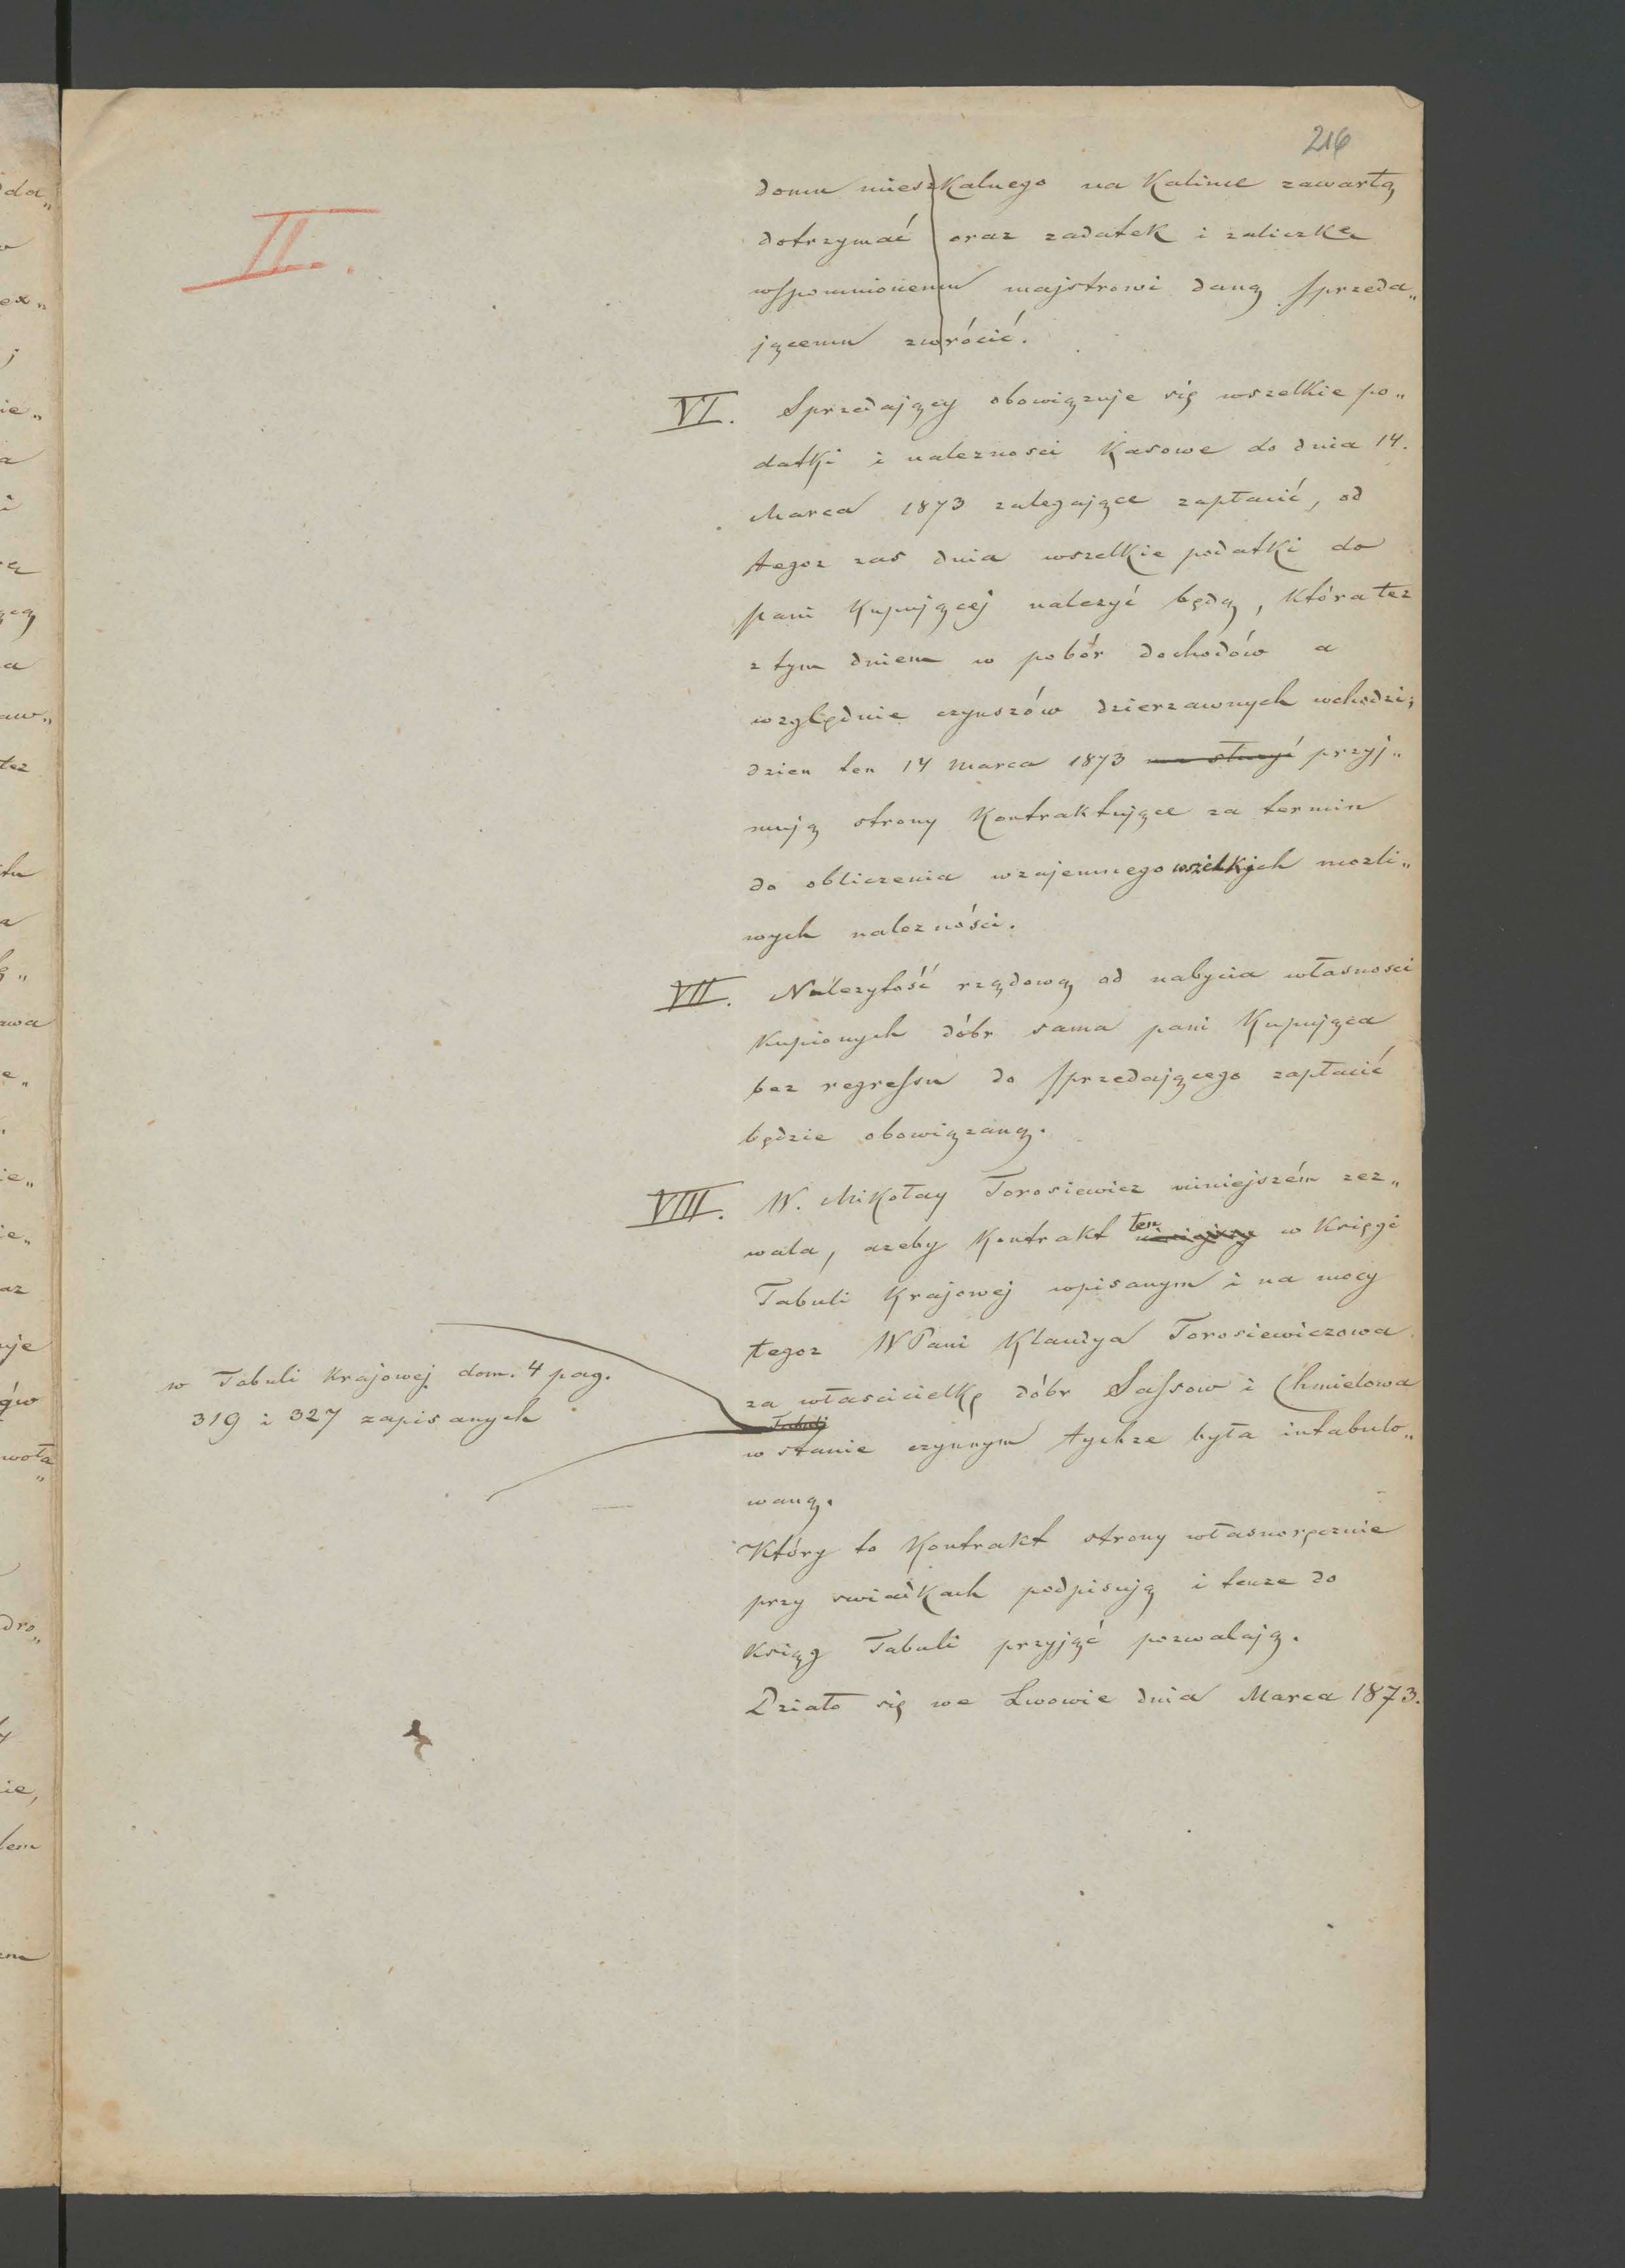 216
II.
domu mieszkalnego na Kalinie zawartą
dotrzymać oraz zadatek i zaliczkę
wspomnionemu majstrowi daną sprzeda„
jącemu zwrócić.
VI. Sprzedający obowiązuje się wszelkie po„
datki i naleznosci Kasowe do dnia 14.
Marca 1873 zalegające zapłacić, od
tegoz zas dnia wszelkie podatki do
pani Kupującej należyć będą, która tez
z tym dniem w pobór dochodów a
względnie czynszów dzierzawnych wchodzi;
dzien ten 14 Marca 1873 ma słuzyć przyj„
mują strony Kontraktujące za termin
do obliczenia wzajemnego wszelkich mozli„
wych nalezności.
VII. Należytość rządową od nabycia własnosci
Kupionych dóbr sama pani Kupująca
bez regressu do sprzedającego zapłacić
będzie obowiązaną.
VIII. W. Mikołay Torosiewicz niniejszém zez„
wala, azeby Kontrakt ten niniejszy w Księgi
Tabuli Krajowej wpisanym i na mocy
tegoz WPani Klaudya Torosiewiczowa
za włascicielkę dóbr Sassow i Chmielowa
w Tabuli Krajowej dom. 4 pag.
319 i 327 zapisanych
Tabuli
w stanie czynnym tychze była intabulo„
waną.
Który to Kontrakt strony własnoręcznie
przy swiadkach podpisują i tenze do
Ksiąg Tabuli przyjąć pozwalają.
Działo się we Lwowie dnia Marca 1873.